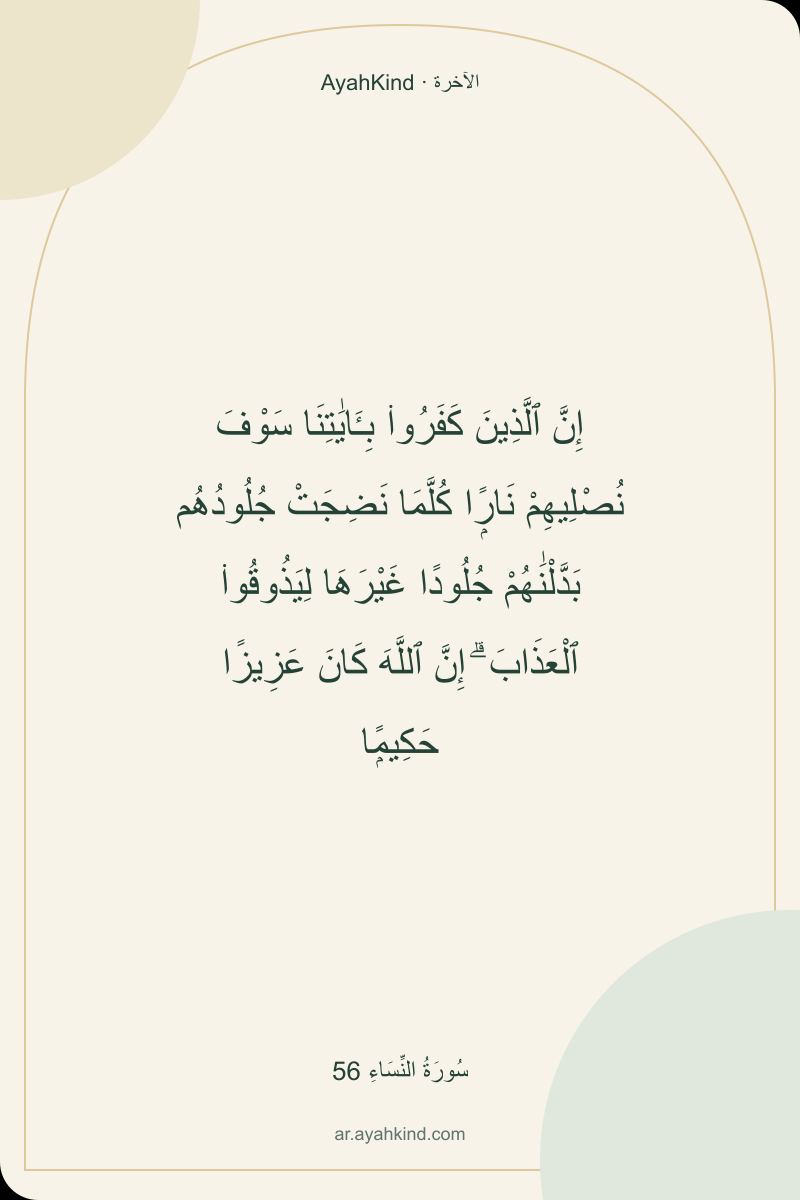 AyahKind · الآخرة
إِنَّ ٱلَّذِينَ كَفَرُوا۟ بِـَٔايَـٰتِنَا سَوْفَ
نُصْلِيهِمْ نَارًۭا كُلَّمَا نَضِجَتْ جُلُودُهُم
بَدَّلْنَـٰهُمْ جُلُودًا غَيْرَهَا لِيَذُوقُوا۟
ٱلْعَذَابَ ۗ إِنَّ ٱللَّهَ كَانَ عَزِيزًا
حَكِيمًۭا
سُورَةُ النِّسَاءِ 56
ar.ayahkind.com